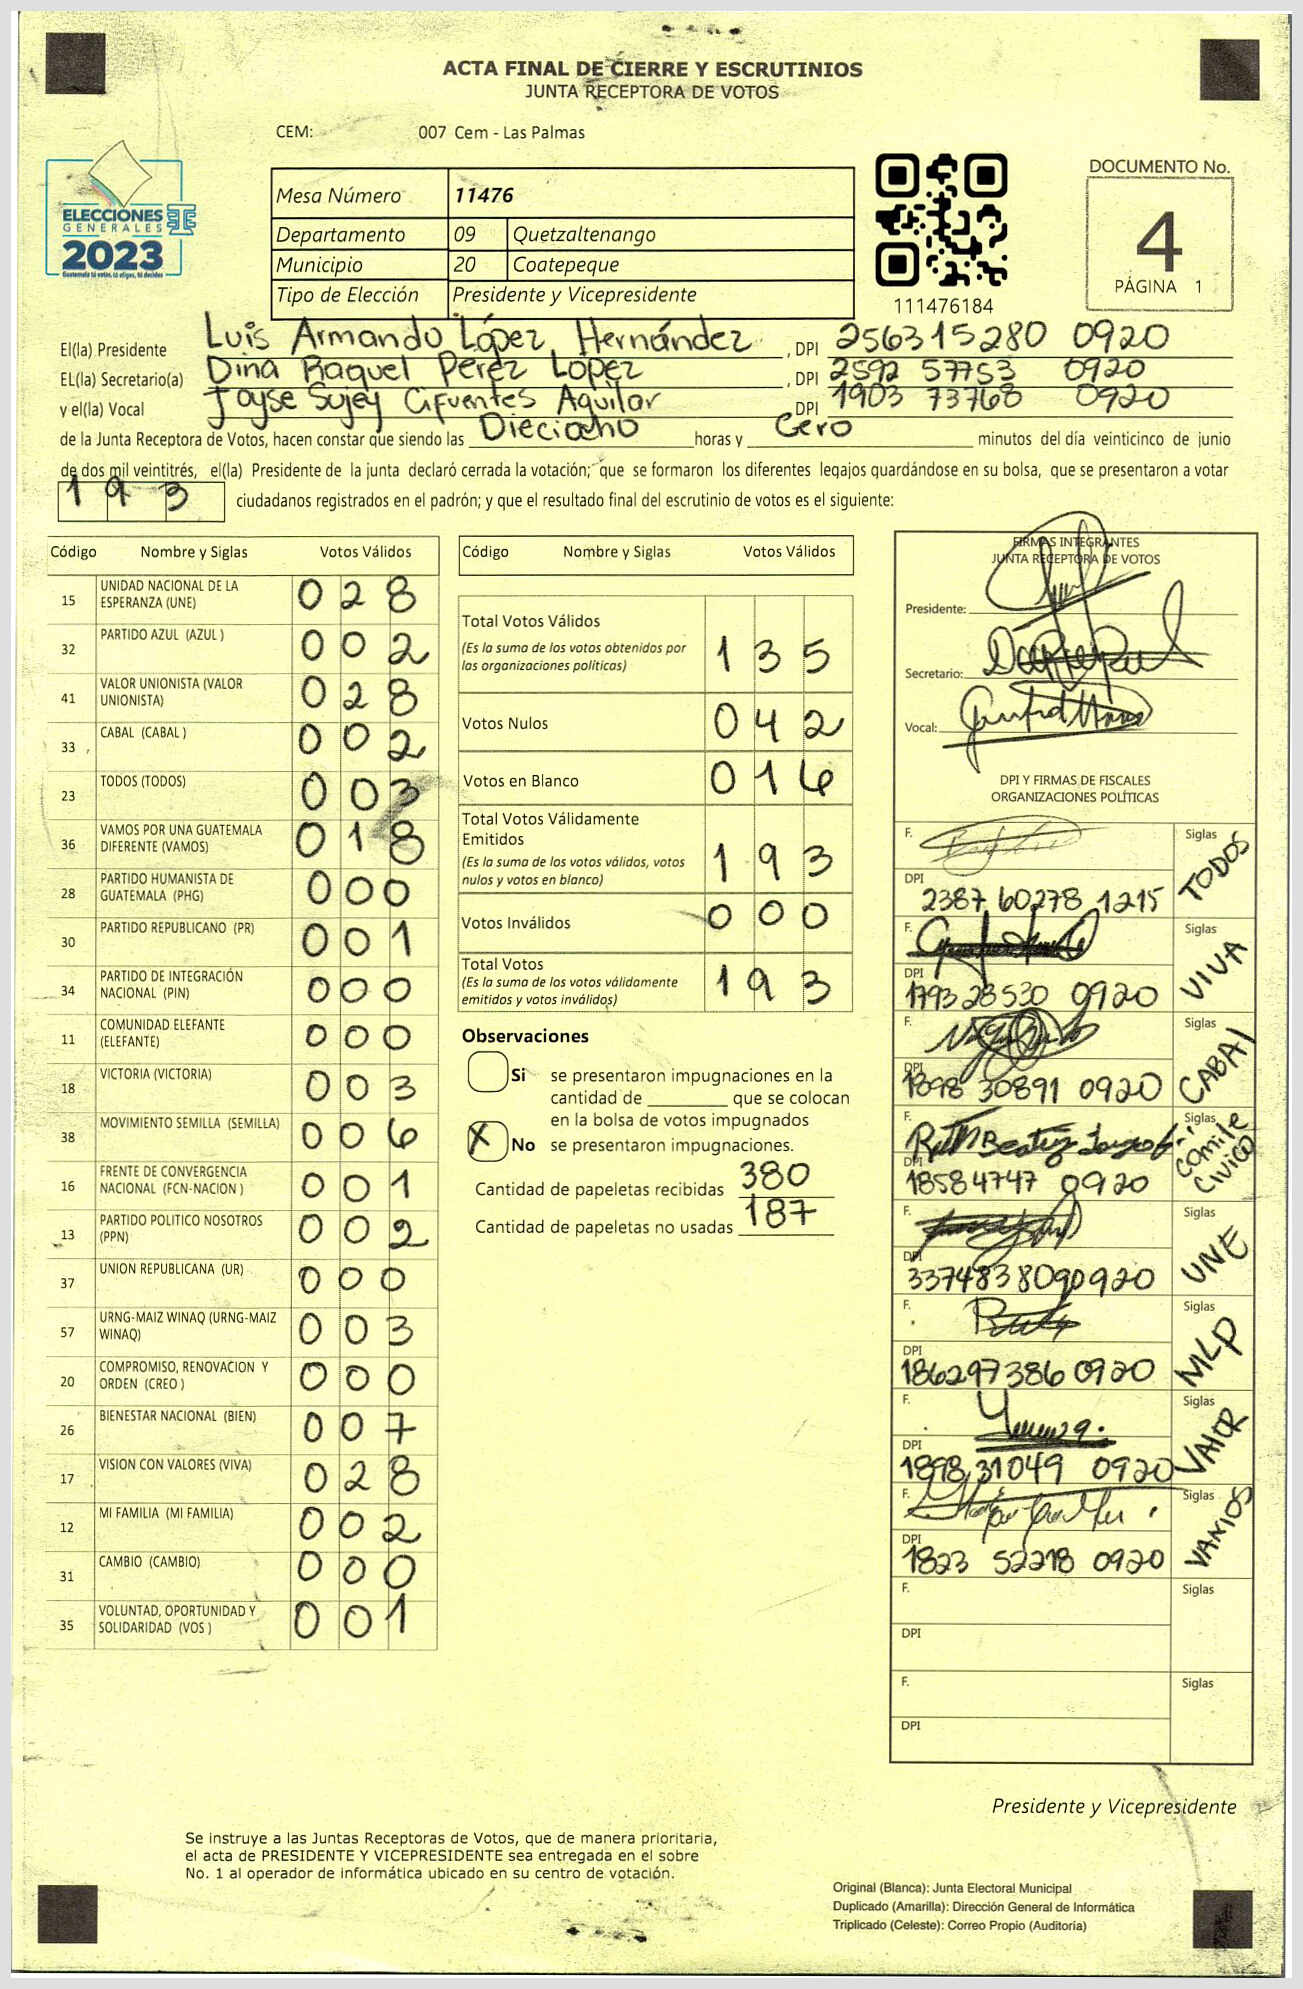 ACTA FINAL DE CIERRE Y ESCRUTINIOS
JUNTA RECEPTORA DE VOTOS
CEM: 007 Cem - Las Palmas
ELECCIONES
GENERALES
2023
Guatemala tú votas, tú eliges, tú decides
Mesa Número 11476
Departamento 09 Quetzaltenango
Municipio 20 Coatepeque
Tipo de Elección Presidente y Vicepresidente
111476184
DOCUMENTO No.
4
PÁGINA 1
El(la) Presidente Luis Armando López Hernández, DPI 256315280 0920
EL(la) Secretario(a) Dina Raquel Perez López, DPI 2592 57753 0920
y el(la) Vocal Joyse Sujey Cifuentes Aguilar DPI 1903 73768 0920
de la Junta Receptora de Votos, hacen constar que siendo las Dieciocho horas y Cero minutos del día veinticinco de junio
de dos mil veintitrés, el(la) Presidente de la junta declaró cerrada la votación; que se formaron los diferentes legajos guardándose en su bolsa, que se presentaron a votar
193 ciudadanos registrados en el padrón; y que el resultado final del escrutinio de votos es el siguiente:
Código Nombre y Siglas Votos Válidos
15 UNIDAD NACIONAL DE LA ESPERANZA (UNE) 028
32 PARTIDO AZUL (AZUL ) 002
41 VALOR UNIONISTA (VALOR UNIONISTA) 028
33 CABAL (CABAL ) 002
23 TODOS (TODOS) 003
36 VAMOS POR UNA GUATEMALA DIFERENTE (VAMOS) 018
28 PARTIDO HUMANISTA DE GUATEMALA (PHG) 000
30 PARTIDO REPUBLICANO (PR) 001
34 PARTIDO DE INTEGRACIÓN NACIONAL (PIN) 000
11 COMUNIDAD ELEFANTE (ELEFANTE) 000
18 VICTORIA (VICTORIA) 003
38 MOVIMIENTO SEMILLA (SEMILLA) 006
16 FRENTE DE CONVERGENCIA NACIONAL (FCN-NACION ) 001
13 PARTIDO POLITICO NOSOTROS (PPN) 002
37 UNION REPUBLICANA (UR) 000
57 URNG-MAIZ WINAQ (URNG-MAIZ WINAQ) 003
20 COMPROMISO, RENOVACION Y ORDEN (CREO ) 000
26 BIENESTAR NACIONAL (BIEN) 007
17 VISION CON VALORES (VIVA) 028
12 MI FAMILIA (MI FAMILIA) 002
31 CAMBIO (CAMBIO) 000
35 VOLUNTAD, OPORTUNIDAD Y SOLIDARIDAD (VOS ) 001
Código Nombre y Siglas Votos Válidos
Total Votos Válidos
(Es la suma de los votos obtenidos por
las organizaciones políticas) 135
Votos Nulos 042
Votos en Blanco 016
Total Votos Válidamente
Emitidos
(Es la suma de los votos válidos, votos
nulos y votos en blanco) 193
Votos Inválidos 000
Total Votos
(Es la suma de los votos válidamente
emitidos y votos inválidos) 193
Observaciones
Si se presentaron impugnaciones en la
cantidad de ________ que se colocan
en la bolsa de votos impugnados
X No se presentaron impugnaciones.
Cantidad de papeletas recibidas 380
Cantidad de papeletas no usadas 187
FIRMAS INTEGRANTES
JUNTA RECEPTORA DE VOTOS
Presidente:
Secretario:
Vocal:
DPI Y FIRMAS DE FISCALES
ORGANIZACIONES POLÍTICAS
F. Siglas TODOS
DPI 2387 60278 1215
F. Siglas VIVA
DPI 1793 28530 0920
F. Siglas CABAL
DPI 1898 30891 0920
F. Siglas comite civico
DPI 18584747 0920
F. Siglas UNE
DPI 3374838090920
F. Siglas MLP
DPI 186297386 0920
F. Siglas VALOR
DPI 1898 31049 0920
F. Siglas VAMOS
DPI 1823 52218 0920
F. Siglas
DPI
F. Siglas
DPI
Presidente y Vicepresidente
Se instruye a las Juntas Receptoras de Votos, que de manera prioritaria,
el acta de PRESIDENTE Y VICEPRESIDENTE sea entregada en el sobre
No. 1 al operador de informática ubicado en su centro de votación.
Original (Blanca): Junta Electoral Municipal
Duplicado (Amarilla): Dirección General de Informática
Triplicado (Celeste): Correo Propio (Auditoría)